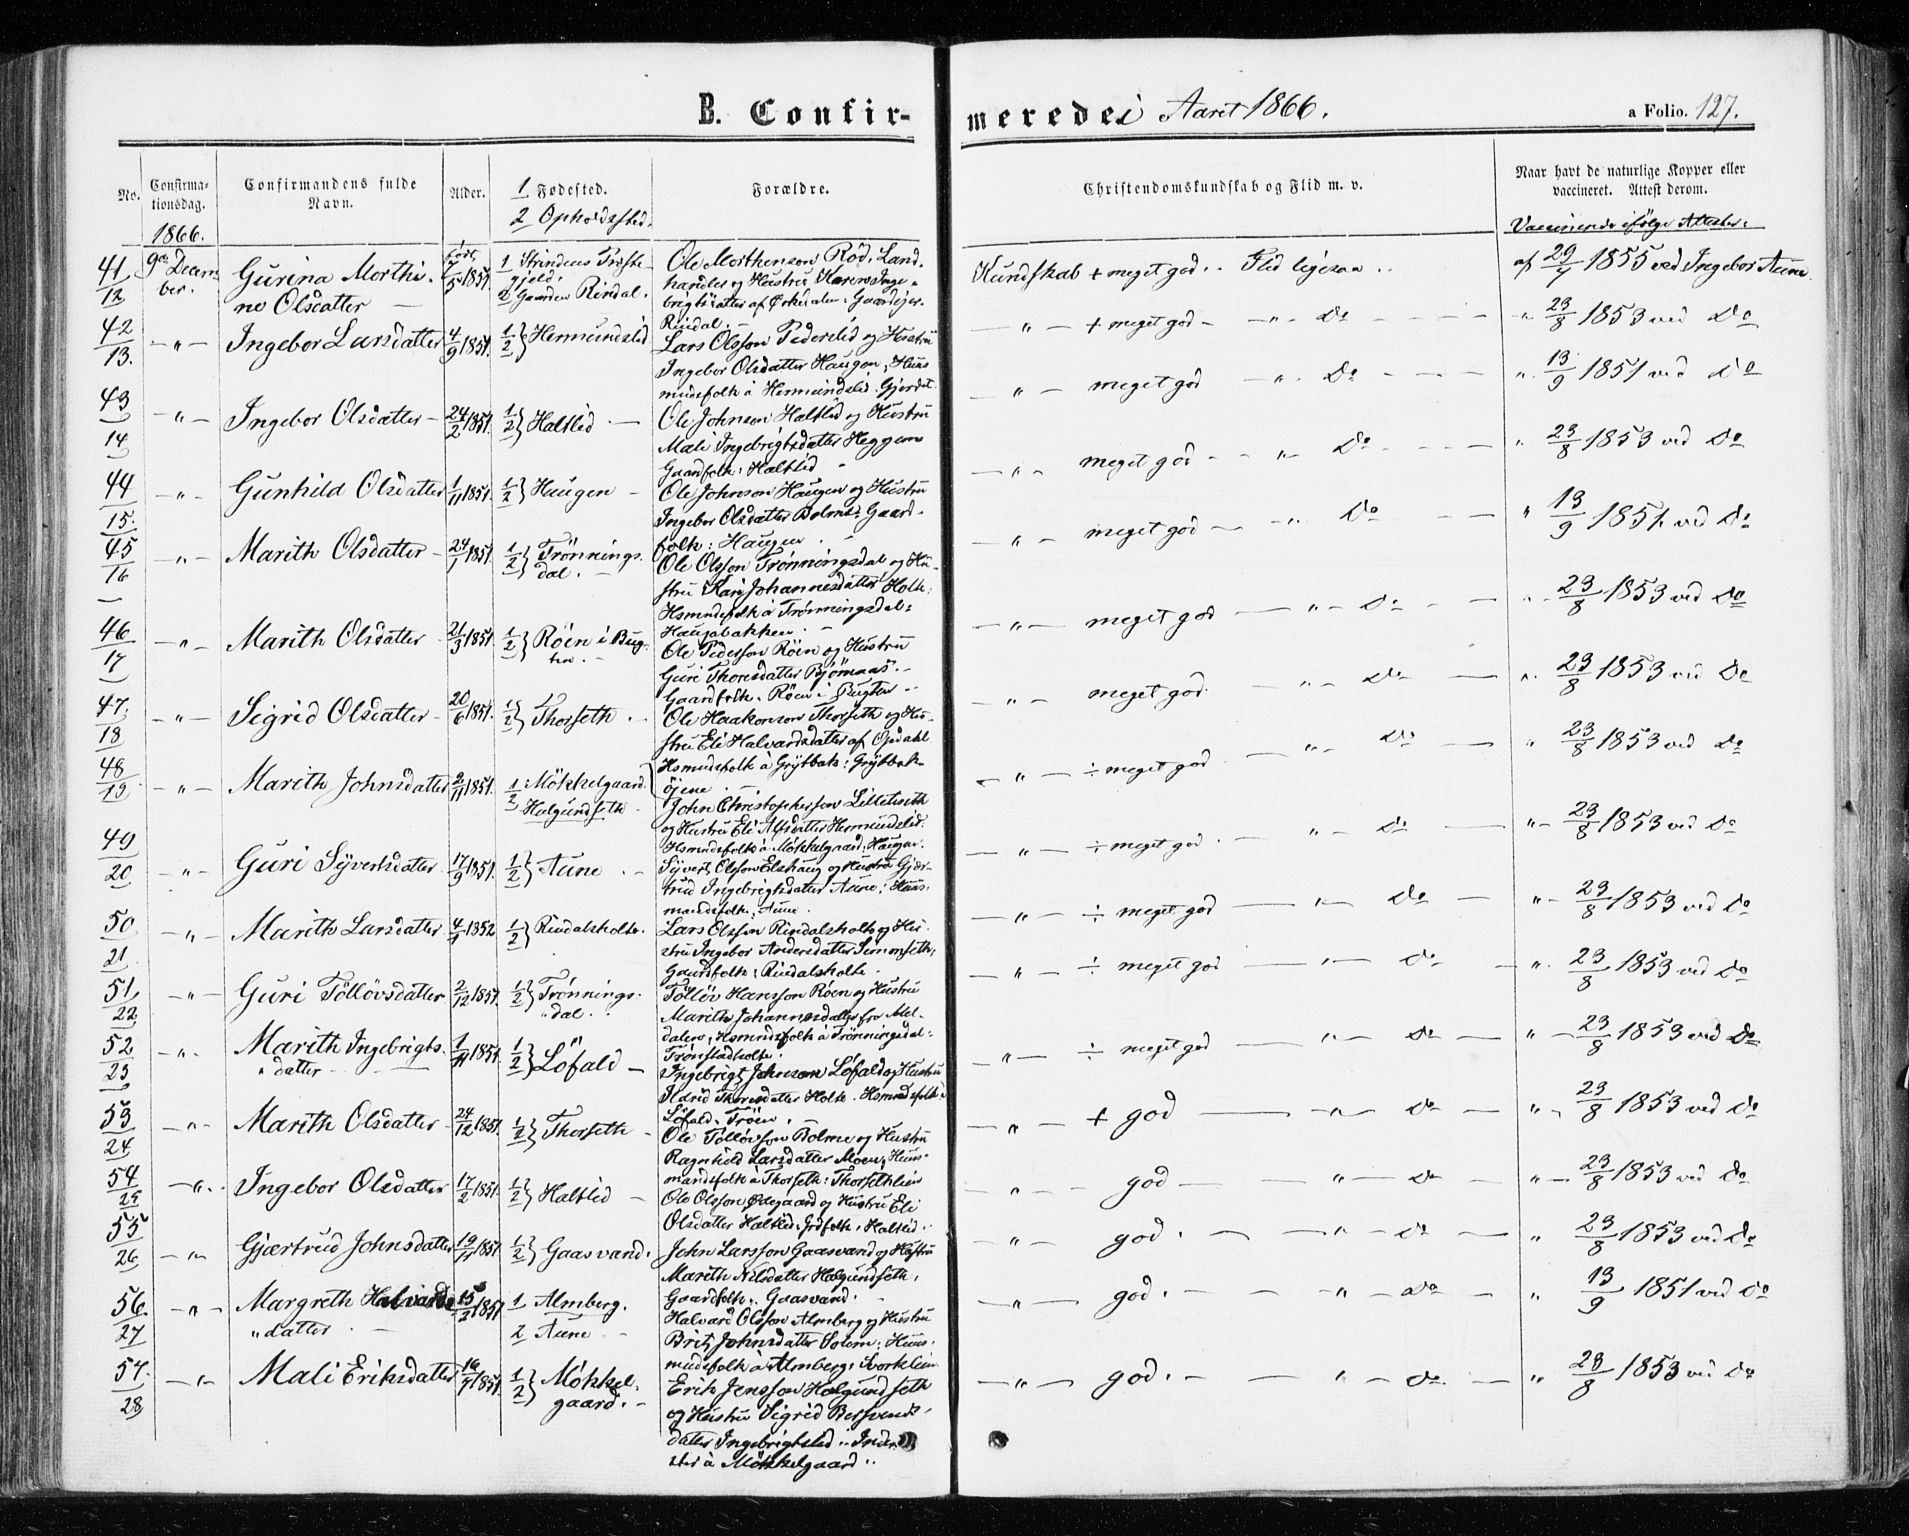 B. Confir-
meredei Aaret 1866.
a Folio. 127.
No.
Confirma-
tionsdag.
Confirmandens fulde
Navn.
Alder.
1 Fødested.
2 Opholdssted.
Forældre.
Christendomskundskab og Flid m. v.
Naar havt de naturlige Kopper eller
vaccineret. Attest derom.
1866.
Vaccinerede ifølge Attester:
41/12 9de Decem-
ber.
Gurina Morthi-
ne Olsdatter
1851.
1 Strindens Præste-
gjeld.
2 Gaarden Rindal.
Ole Morthenson Rød, Land-
handler og Hustru Karen Inge-
brigtsdatter af Ørkedalen: Gaardejer
Rindal.
Kundskab + meget god .. Flid ligesaa ..
af 29/7 1855 ved Ingebor Aune
42/13. -"- Ingebor Larsdatter 4/9 1851. 1/2} Hermundslid
Lars Olsson Pederslid og Hustru
Ingebor Olsdatter Haugen, Huus
mndsfolk à Hermundslid Gjerdet.
- " - + meget god - -"- Do - - - - " 23/8 1853 ved Do
43/14 -"- Ingebor Olsdatter - 24/2 1851. 1/2} Haltlid -
Ole Johnson Haltlid og Hustru
Mali Ingebrigtsdatter Heggem
Gaardfolk: Haltlid
- " - meget god -"- Do - - - - " 13/9 1851 ved Do
44/15. -"- Gunhild Olsdatter 1/11 1851. 1/2} Haugen -
Ole Johnson Haugen og Hustru
Ingebor Olsdatter Bolme: Gaard-
folk: Haugen
- " - meget god - -"- Do - - - " 23/8 1853 ved Do
45/16 -"- Marith Olsdatter - 24/1 1851. 1/2} Trønnings-
dal. -
Ole Olsson Trønningsdal og Hu-
stru Kari Johannesdatter Holte:
Hsmndsfolk à Trønningsdal:
Haugabakken.
- " - meget god - -"- Do - - " 13/9 1851 ved Do
46/17 -"- Marith Olsdatter - 21/3 1851. 1/2} Röen i Bug-
ten. -
Ole Pedersson Röen og Hustru
Guri Thoresdatter Bjömaas. -
Gaardfolk. Röen i Bugten
- " - meget god - " - Do - - - " 23/8 1853 ved Do
47./18 -"- Sigrid Olsdatter - 20/6 1851. 1/2} Thorseth. -
Ole Haakonson Thorseth og Hu-
stru Eli Halvardsdatter af Opdahl
Hsmndsfolk à Grÿtbak: Grÿtbak-
öjene
- " - meget god. - " - Do - - " 23/8 1853 ved Do
48/19 -"- Marith Johnsdatter 2/11 1851. 1 Mökkelgaard.
2 Halgundseth.
John Christophersson Lilletseth
og Hustru Eli Alfsdatter Hermundslid.
Hsmndsfolk à Mökkelgaard: Haugen.
- " - ÷ meget god. - " - Do - " 23/8 1853 ved Do
49/20 -"- Guri Syvertsdatter. 17/9 1851. 1/2} Aune . -
Syvert Olsson Elshaug og Hustru Gjær-
trud Ingebrigtsdatter Aune: Huus-
mandsfolk: Aune.
- " - ÷ meget god. - " - Do - "- 23/8 1853 ved Do
50/21. -"- Marith Larsdatter 4/1 1852 1/2} Rindalsholte.
Lars Olsson Rindalsholte og Hu-
stru Ingebor Andersdatter Simonseth,
Gaardfolk: Rindalsholte.
- " - ÷ meget god - " - Do - "- 23/8 1853 ved Do
51/22 -"- Guri Töllövsdatter 2/12 1851. 1/2} Trønnings-
"dal.
Töllöv Hansson Röen og Hustru
Marith Johannesdatter fra Mel-
dalen: Hsmndsfolk à Trønningsdal:
Trönstadholte.
- " - ÷ meget god - " - Do - "- 23/8 1853 ved Do
52/23 -"- Marith Ingebrigts-
"datter
1851. 1/2} Löfald -
Ingebrigt Johnson Löfald og Hustru
Ildrid Thoresdatter Holte. Hsmndsfolk:
Löfald. Tröen.
- " - ÷ meget god - " - Do - " - 23/8 1853 ved Do
53/24 -"- Marith Olsdatter - 24/12 1851. 1/2} Thorseth -
Ole Töllövsson Bolme og Hustru
Ragnhild Larsdatter Moen: Huus-
mandsfolk à Thorseth: Thorsethlien
- " - + god - " - Do - " - 23/8 1853 ved Do
54/25 -"- Ingebor Olsdatter 17/2 1851. 1/2} Haltlid -
Ole Olsson Ødegaard og Hustru Eli
Olsdatter Haltlid: Grdfolk, Haltlid.
- " - god - " - Do - " - 23/8 1853 ved Do
55/26 -"- Gjærtrud Johnsdatter 1851. 1/2} Gaasvand.
John Larsson Gaasvand og Hustru
Marith Nilsdatter Halgundseth,
Gaardfolk. Gaasvand.
- " - god. - " - Do - " 23/8 1853 ved Do
56./27 -"- Margreth Halvards-
"datter
1851. 1 Almberg.
2 Aune
Halvard Olsson Almberg og Hustru
Brit Johnsdatter Solem: Huus-
mndsfolk à Almberg: Svorklien
- " - god. - " - Do - " 13/9 1851 ved Do
57./28 -"- Mali Eriksdatter 1851. 1/2} Mökkel-
gaard. -
Erik Jensson Halgundseth
og Hustru Sigrid Bersvends-
datter Ingebrigtslid .. Inder-
ster à Mökkelgaard ..
- " - god. - " - Do. - " 23/8 1853 ved Do